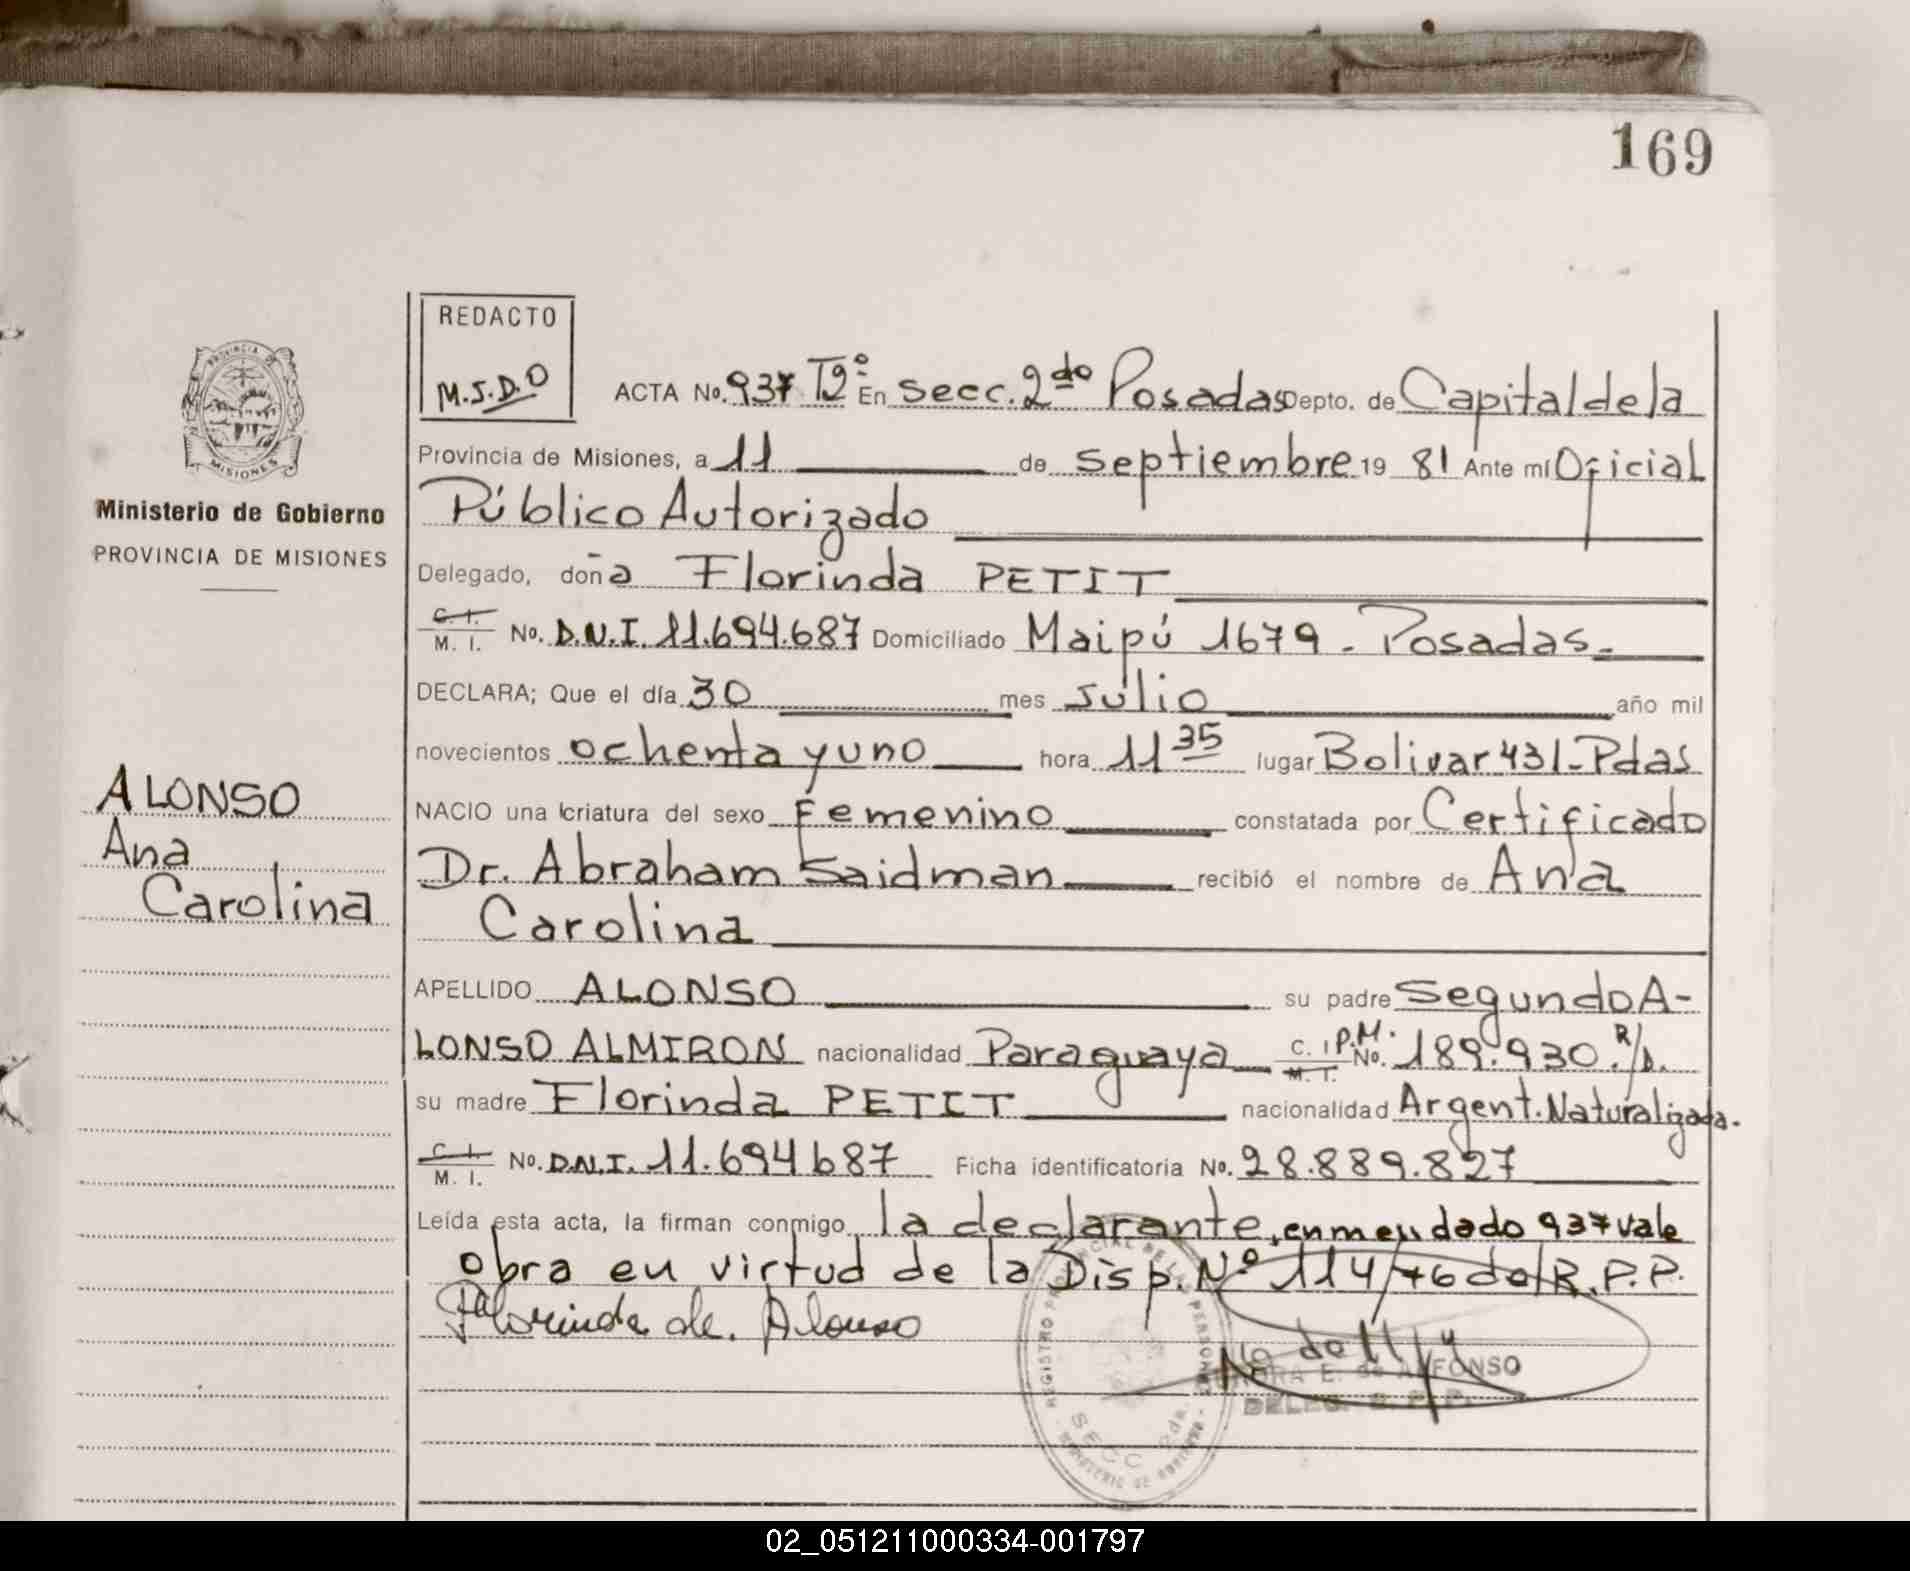 169
REDACTO
M.S.D.O
PROVINCIA DE
MISIONES
Ministerio de Gobierno
PROVINCIA DE MISIONES
ALONSO
Ana
Carolina
ACTA No. 937 Tº2 En secc. 2do Posadas Depto. de Capital de la
Provincia de Misiones, a 11 de septiembre 19 81 Ante mí Oficial
Público Autorizado
Delegado, doña Florinda PETIT
C. I.
M. I. No. D.N.I. 11.694.687 Domiciliado Maipú 1679 - Posadas.-
DECLARA; Que el día 30 mes Julio año mil
novecientos ochenta y uno hora 11 35 lugar Bolivar 431-Pdas
NACIO una criatura del sexo Femenino constatada por Certificado
Dr. Abraham Saidman recibió el nombre de Ana
Carolina
APELLIDO ALONSO su padre Segundo A-
LONSO ALMIRON nacionalidad Paraguaya C. I P.M. M. I. No. 189.930. R/D.
su madre Florinda PETIT nacionalidad Argent. Naturalizada.
C. I.
M. I. No. D.N.I. 11.694687 Ficha identificatoria No. 28.889.827
Leída esta acta, la firman conmigo la declarante, enmendado 937 vale
obra en virtud de la Disp. Nº 114/76 del R.P.P.
Florinda de. Alonso
REGISTRO PROVINCIAL DE LAS PERSONAS
SECC 2da.
MINISTERIO DE GOBIERNO
E. de ALFONSO
DELEG. R. P. P.
02_051211000334-001797